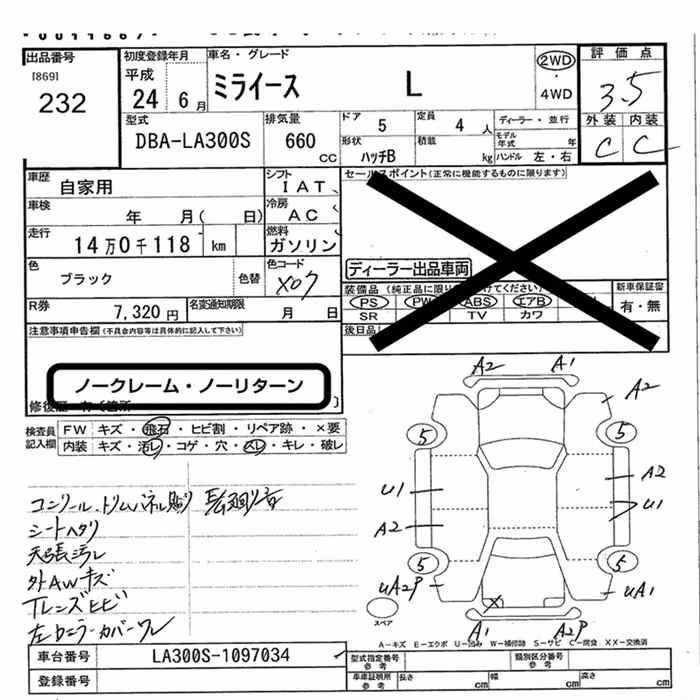 出品番号 初度登録年月 車名・グレード 評価点
[869] 平成 2WD
232 24 6月 ミライース L ・4WD 3.5
型式 排気量 ドア 定員 ディーラー・並行 外装 内装
DBA-LA300S 660 CC 5 4人 モデル年式 年 C C
形状 積載
ハッチB kg ハンドル 左・右
車歴 自家用 シフト セールスポイント(正常に機能するものに限ります)
IAT
車検 年 月( 日) 冷房
AC
走行 燃料
14万0千118 km ガソリン
色 色コード ディーラー出品車両
ブラック 色替 X07 装備品(純正品に限り 付けてください) 新車保証書
R券 名変通知期限 PS PW ABS エアB 有・無
7,320円 月 日 SR TV カワ
注意事項申告欄(不具合内容等は具体的に記入して下さい) 後日品
ノークレーム・ノーリターン
修復歴
検査員 FW キズ・飛石・ヒビ割・リペア跡・×要
記入欄 内装 キズ・汚レ・コゲ・穴・スレ・キレ・破レ
A2 A1
A2
5 5
U1 A2
A2 U1
5 5
UA2P UA1
X
A1 A2P
スペア
シートヘタリ
天張汚レ
外AWキズ
TLンズヒビ
A-キズ E-エクボ U-凹み W-補修跡 S-サビ C-腐食 XX-交換済
車台番号 LA300S-1097034 型式指定番号 参考 類別区分番号 参考
登録番号 車庫証明用 参考 長さ cm 幅 cm 高さ cm